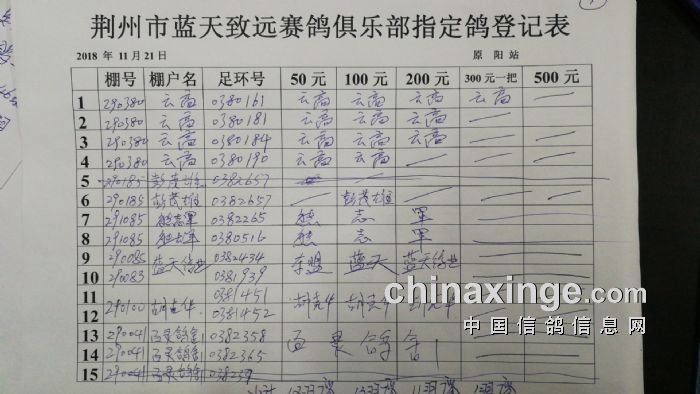 荆州市蓝天致远赛鸽俱乐部指定鸽登记表
2018 年 11 月 21 日 原 阳 站
棚号 棚户名 足环号 50 元 100 元 200 元 300 元一把 500 元
1 290380 云高 0380161 云高 云高 云高 云高 —
2 290380 云高 0380181 云高 云高 云高 — —
3 290380 云高 0380184 云高 云高 云高 — —
4 290380 云高 0380190 云高 云高 — — —
5 290185 彭茂雄 0382657 —
6 290185 彭茂雄 0382657 — 彭茂雄 — — —
7 291085 熊志军 0382265 熊 志 军
8 291085 熊志军 0380516 熊 志 军
9 290085 蓝天 0382434 东盟 蓝天 蓝天
10 290083 0381939
11 0381451
290100 胡克华 胡克华 胡克华 胡克华
12 0381452
13 290041 百果鸽舍 0382358 百 果 鸽 舍
14 290041 百果鸽舍 0382365
15 290041 百果鸽舍 038239
小计
chinaxinge.com
中国信鸽信息网